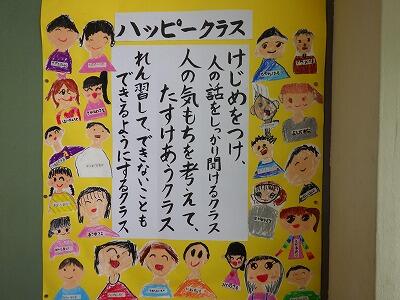 ハッピークラス
けじめをつけ、
人の話をしっかり聞けるクラス
人の気もちを考えて、
たすけあうクラス
れん習して、できないことも
できるようにするクラス